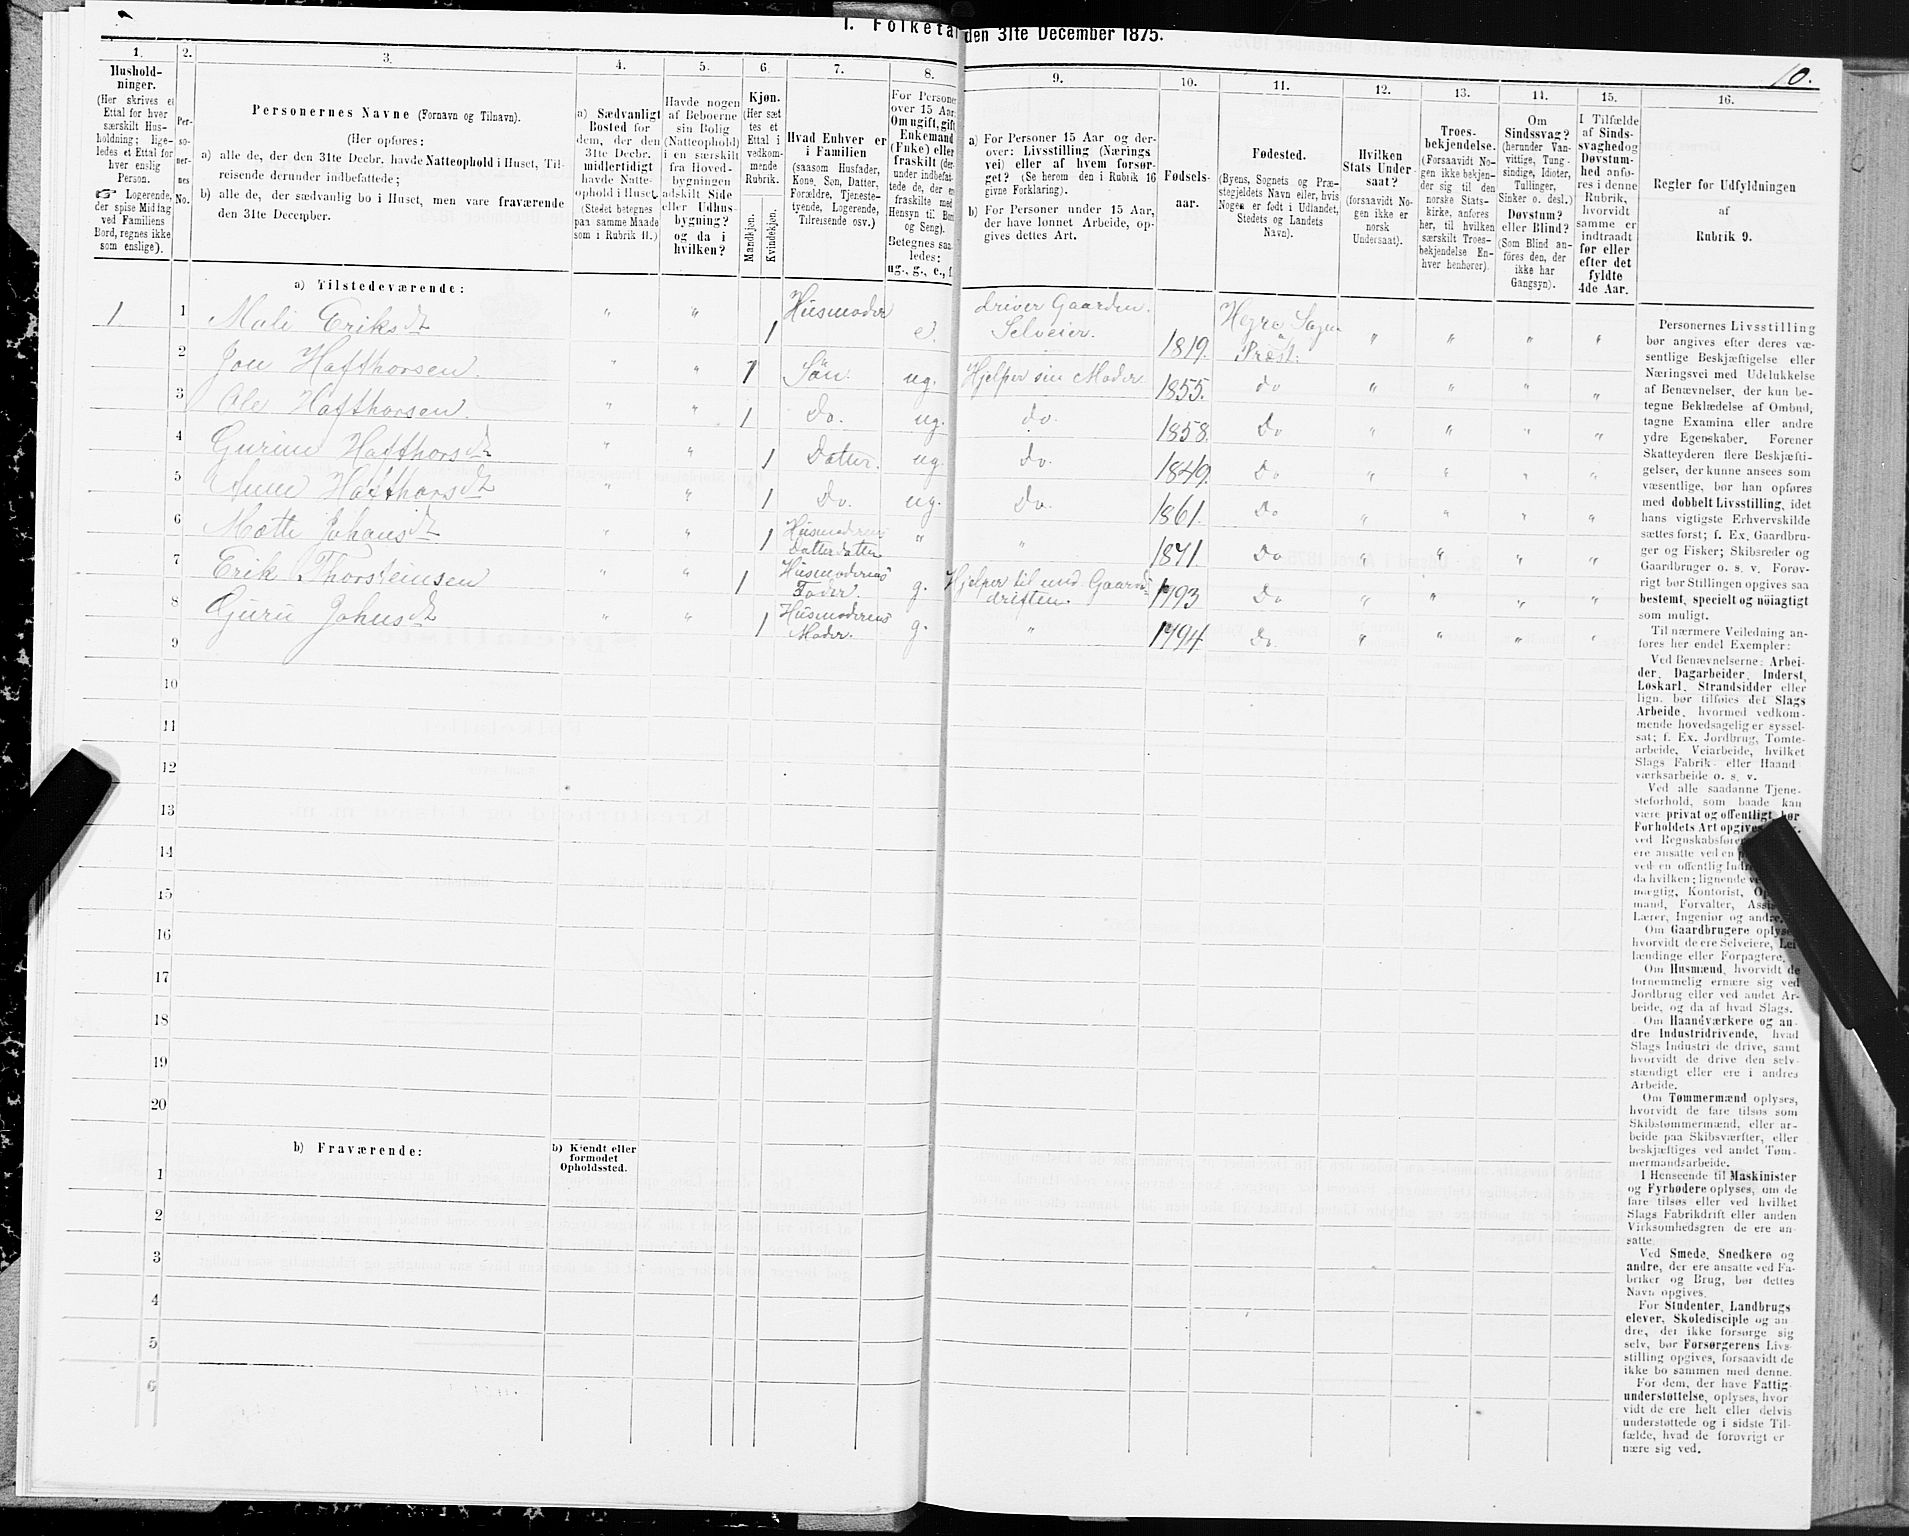 I. Folketal den 31te December 1875.
10.
1. 2. 3. 4. 5. 6. 7. 8. 9. 10. 11. 12. 13. 14. 15. 16.
Hushold-
ninger.
(Her skrives et
Ettal for hver
særskilt Hus-
holdning; lige-
ledes et Ettal for
hver enslig
Person.
☞ Logerende,
der spise Middag
ved Familiens
Bord, regnes ikke
som enslige).
Per-
so-
ner-
nes
No.
Personernes Navne (Fornavn og Tilnavn).
(Her opføres:
a) alle de, der den 31te Decbr. havde Natteophold i Huset, Til-
reisende derunder indbefattede;
b) alle de, der sædvanlig bo i Huset, men vare fraværende
den 31te December.
a) Sædvanligt
Bosted for
dem, der den
31te Decbr.
midlertidigt
havde Natte-
ophold i Huset.
(Stedet betegnes
paa samme Maade
som i Rubrik 11.)
Havde nogen
af Beboerne
sin Bolig
(Natteophold)
i en særskilt
fra Hoved-
bygningen
adskilt Side
eller Udhus-
bygning?
og da i
hvilken?
Kjøn.
(Her sæt
tes et
Ettal i
vedkom-
mende
Rubrik.
Mandkjøn.
Kvindekjøn.
Hvad Enhver er
i Familien
(saasom Husfader,
Kone, Søn, Datter,
Forældre, Tjeneste-
tyende, Logerende,
Tilreisende osv.)
For Personer
over 15 Aar:
Om ugift, gift,
Enkemand
(Enke) eller
fraskilt (der-
under indbefat-
tede de, der er
fraskilte med
Hensyn til Bord
og Seng).
Betegnes saa-
ledes:
ug., g., e., f.
a) For Personer 15 Aar og der-
over: Livsstilling (Nærings
vei) eller af hvem forsør-
get? (Se herom den i Rubrik 16
givne Forklaring).
b) For Personer under 15 Aar,
der have lønnet Arbeide, op-
gives dettes Art.
Fødsels-
aar.
Fødested.
(Byens, Sognets og Præ-
stegjeldets Navn eller, hvis
Nogen er født i Udlandet,
Stedets og Landets
Navn).
Hvilken
Stats Under
saat?
(forsaavidt No-
gen ikke er
norsk
Undersaat).
Troes-
bekjendelse.
(Forsaavidt No-
gen ikke bekjen-
der sig til den
norske Stats-
kirke, anføres
her, til hvilken
særskilt Troes-
bekjendelse En-
hver henhører).
Om
Sindssvag?
(herunder Van-
vittige, Tung-
sindige, Idioter,
Tullinger,
Sinker o. desl.)
Døvstum?
eller Blind?
(Som Blind an-
føres den, der
ikke har
Gangsyn).
I Tilfælde
af Sinds-
svaghed og
Døvstum-
hed anfø-
res i denne
Rubrik,
hvorvidt
samme er
indtraadt
før eller
efter det
fyldte
4de Aar.
Regler for Udfyldningen
af
Rubrik 9.
a) Tilstedeværende:
1 1 Mali Eriksdt " " 1 Husmoder e. driver Gaarden. Selveier. 1819. Hegra Sogn & Præst. " " " "
2 Jon Hafthorsen. " " 1 Søn. ug. Hjelper sin Moder 1855. do " " " "
3 Ole Hafthorsen. " " 1 Do. ug. do. 1858. Do " " " "
4 Gurine Hafthorsdt " " 1 Datter. ug. do. 1849. Do " " " "
5 Anne Hafthorsdt " " 1 Do. ug. Do. 1861. Do " " " "
6 Mette Johansdt " " 1 Husmoderens Datterdatter " " 1871. Do " " " "
7 Erik Thorsteinsen " " 1 Husmoderens Fader. g. Hjelper til med Gaards-driften. 1793 Do " " " "
8 Guru Johnsdt " " 1 Husmoderens Moder. g. " 1794. Do. " " " "
9
10
11
12
13
14
15
16
17
18
19
20
b) Fraværende:
b) Kjendt eller
formodet
Opholdssted.
1
2
3
4
5
6
Personernes Livsstilling
bør angives efter deres væ-
sentlige Beskjæftigelse eller
Næringsvei med Udelukkelse
af Benævnelser, der kun be-
tegne Beklædelse af Ombud,
tagne Examina eller andre
ydre Egenskaber. Forener
Skatteyderen flere Beskjæfti-
gelser, der kunne ansees som
væsentlige, bør han opføres
med dobbelt Livsstilling, idet
hans vigtigste Erhvervskilde
sættes først; f. Ex. Gaardbru-
ger og Fisker; Skibsreder og
Gaardbruger o. s. v. Forøv-
rigt bør Stillingen opgives saa
bestemt, specielt og nøiagtigt
som muligt.
Til nærmere Veiledning an-
føres her endel Exempler:
Ved Benævnelserne: Arbei-
der, Dagarbeider, Inderst,
Løskarl, Strandsidder eller
lign. bør tilføies det Slags
Arbeide, hvormed vedkom-
mende hovedsagelig er syssel-
sat; f. Ex. Jordbrug, Tomte-
arbeide, Veiarbeide, hvilket
Slags Fabrik- eller Haand
værksarbeide o. s. v.
Ved alle saadanne Tjene-
steforhold, som baade kan
være privat og offentligt, bør
Forholdets Art opgives
ved Regnskabsføre
ere ansatte ved en
ved en offentlig
da hvilken; lignende
mægtig, Kontorist,
mand, Forvalter,
Lærer, Ingeniør og andre.
Om Gaardbrugere oplyse
hvorvidt de ere Selveiere, Lei
lændinge eller Forpagtere.
Om Husmænd, hvorvidt de
fornemmelig ernære sig ved
Jordbrug eller ved andet Ar-
beide, og da af hvad Slags.
Om Haandværkere og an-
dre Industridrivende, hvad
Slags Industri de drive, samt
hvorvidt de drive den selv-
stændigt eller ere i andres
Arbeide.
Om Tømmermænd oplyses,
hvorvidt de fare tilsøs som
Skibstømmermænd, eller ar-
beide paa Skibsværfter, eller
beskjæftiges ved andet Tøm-
mermandsarbeide.
I Henseende til Maskinister
og Fyrbødere oplyses, om de
fare tilsøs eller ved hvilket
Slags Fabrikdrift eller anden
Virksomhedsgren de ere an-
satte.
Ved Smede, Snedkere og
andre, der ere ansatte ved Fa-
briker og Brug, bør dettes
Navn opgives.
For Studenter, Landbrugs
elever, Skoledisciple og an-
dre, der ikke forsørge sig
selv, bør Forsørgerens Livs-
stilling opgives, forsaavidt de
ikke bo sammen med denne.
For dem, der have Fattig
understøttelse, oplyses, hvor-
vidt de ere helt eller delvis
understøttede og i sidste Til-
fælde, hvad de forøvrigt er
nære sig ved.